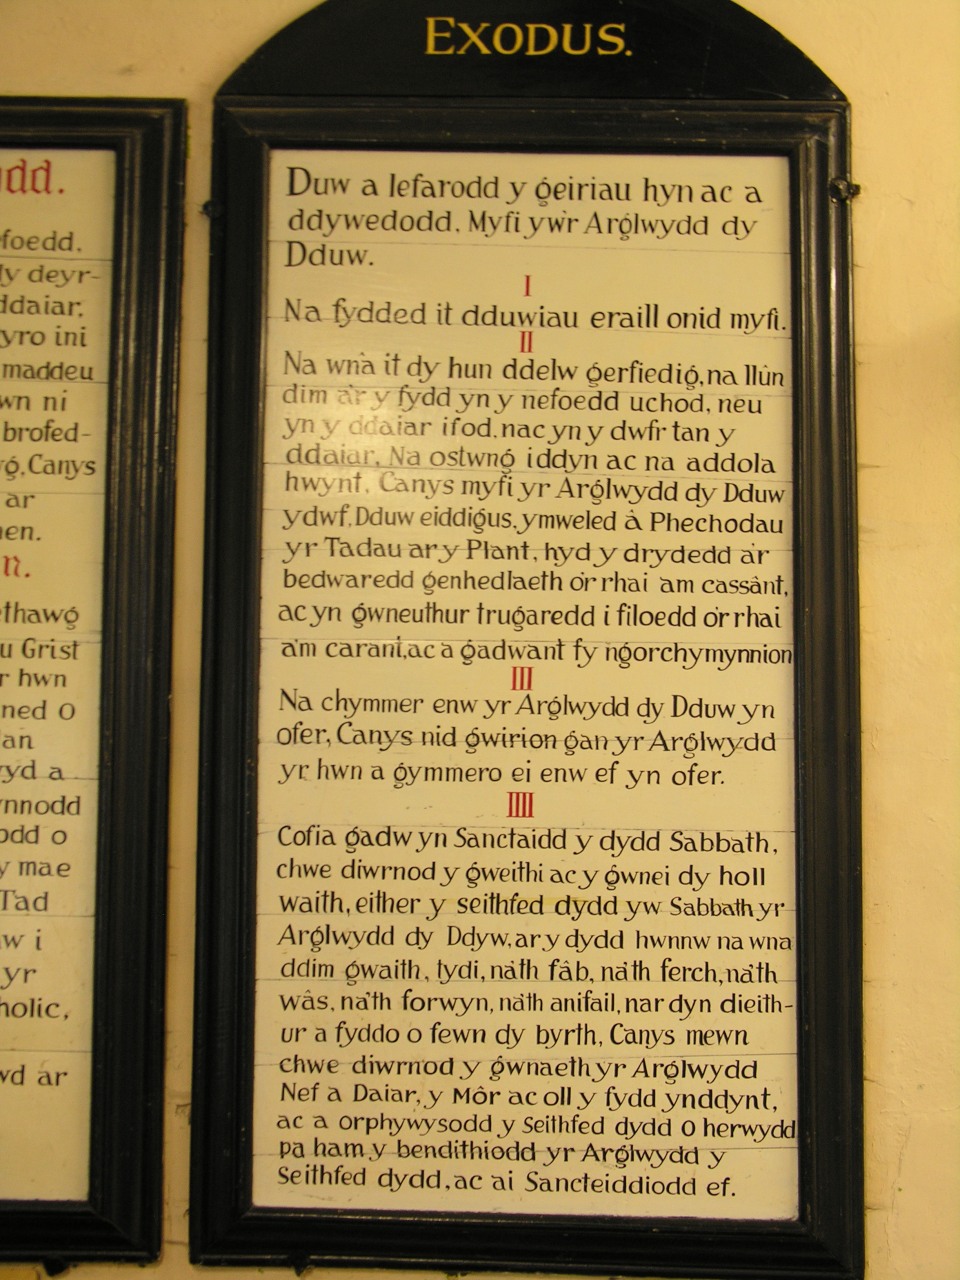 EXODUS.
Duw a lefarodd y geiriau hyn ac a
ddywedodd. Myfi yw'r Arglwydd dy
Dduw.
I
Na fydded it dduwiau eraill onid myfi.
II
Na wna it dy hun ddelw gerfiedig, na llun
dim a'r y fydd yn y nefoedd uchod, neu
yn y ddaiar ifod, nac yn y dwfr tan y
ddaiar. Na ostwng iddyn ac na addola
hwynt. Canys myfi yr Arglwydd dy Dduw
ydwf, Dduw eiddigus, ymweled â Phechodau
yr Tadau ar y Plant, hyd y drydedd a'r
bedwaredd genhedlaeth o'r rhai a'm cassânt,
ac yn gwneuthur trugaredd i filoedd o'r rhai
a'm carant, ac a gadwant fy ngorchymynnion
III
Na chymmer enw yr Arglwydd dy Dduw yn
ofer, Canys nid gwirion gan yr Arglwydd
yr hwn a gymmero ei enw ef yn ofer.
IIII
Cofia gadw yn Sanctaidd y dydd Sabbath,
chwe diwrnod y gweithi ac y gwnei dy holl
waith, either y seithfed dydd yw Sabbath yr
Arglwydd dy Ddyw, ar y dydd hwnnw na wna
ddim gwaith, tydi, na'th fâb, na'th ferch, na'th
wâs, na'th forwyn, na'th anifail, nar dyn dieith-
ur a fyddo o fewn dy byrth, Canys mewn
chwe diwrnod y gwnaeth yr Arglwydd
Nef a Daiar, y Môr ac oll y fydd ynddynt,
ac a orphywysodd y Seithfed dydd O herwydd
pa ham y bendithiodd yr Arglwydd y
Seithfed dydd, ac ai Sancteiddiodd ef.
dd.
foedd.
dy deyr-
ddaiar,
ini
maddeu
ni
brofed-
Canys
ar
n.
Grist
hwn
O
a
o
mae
Tad
i
yr
ar